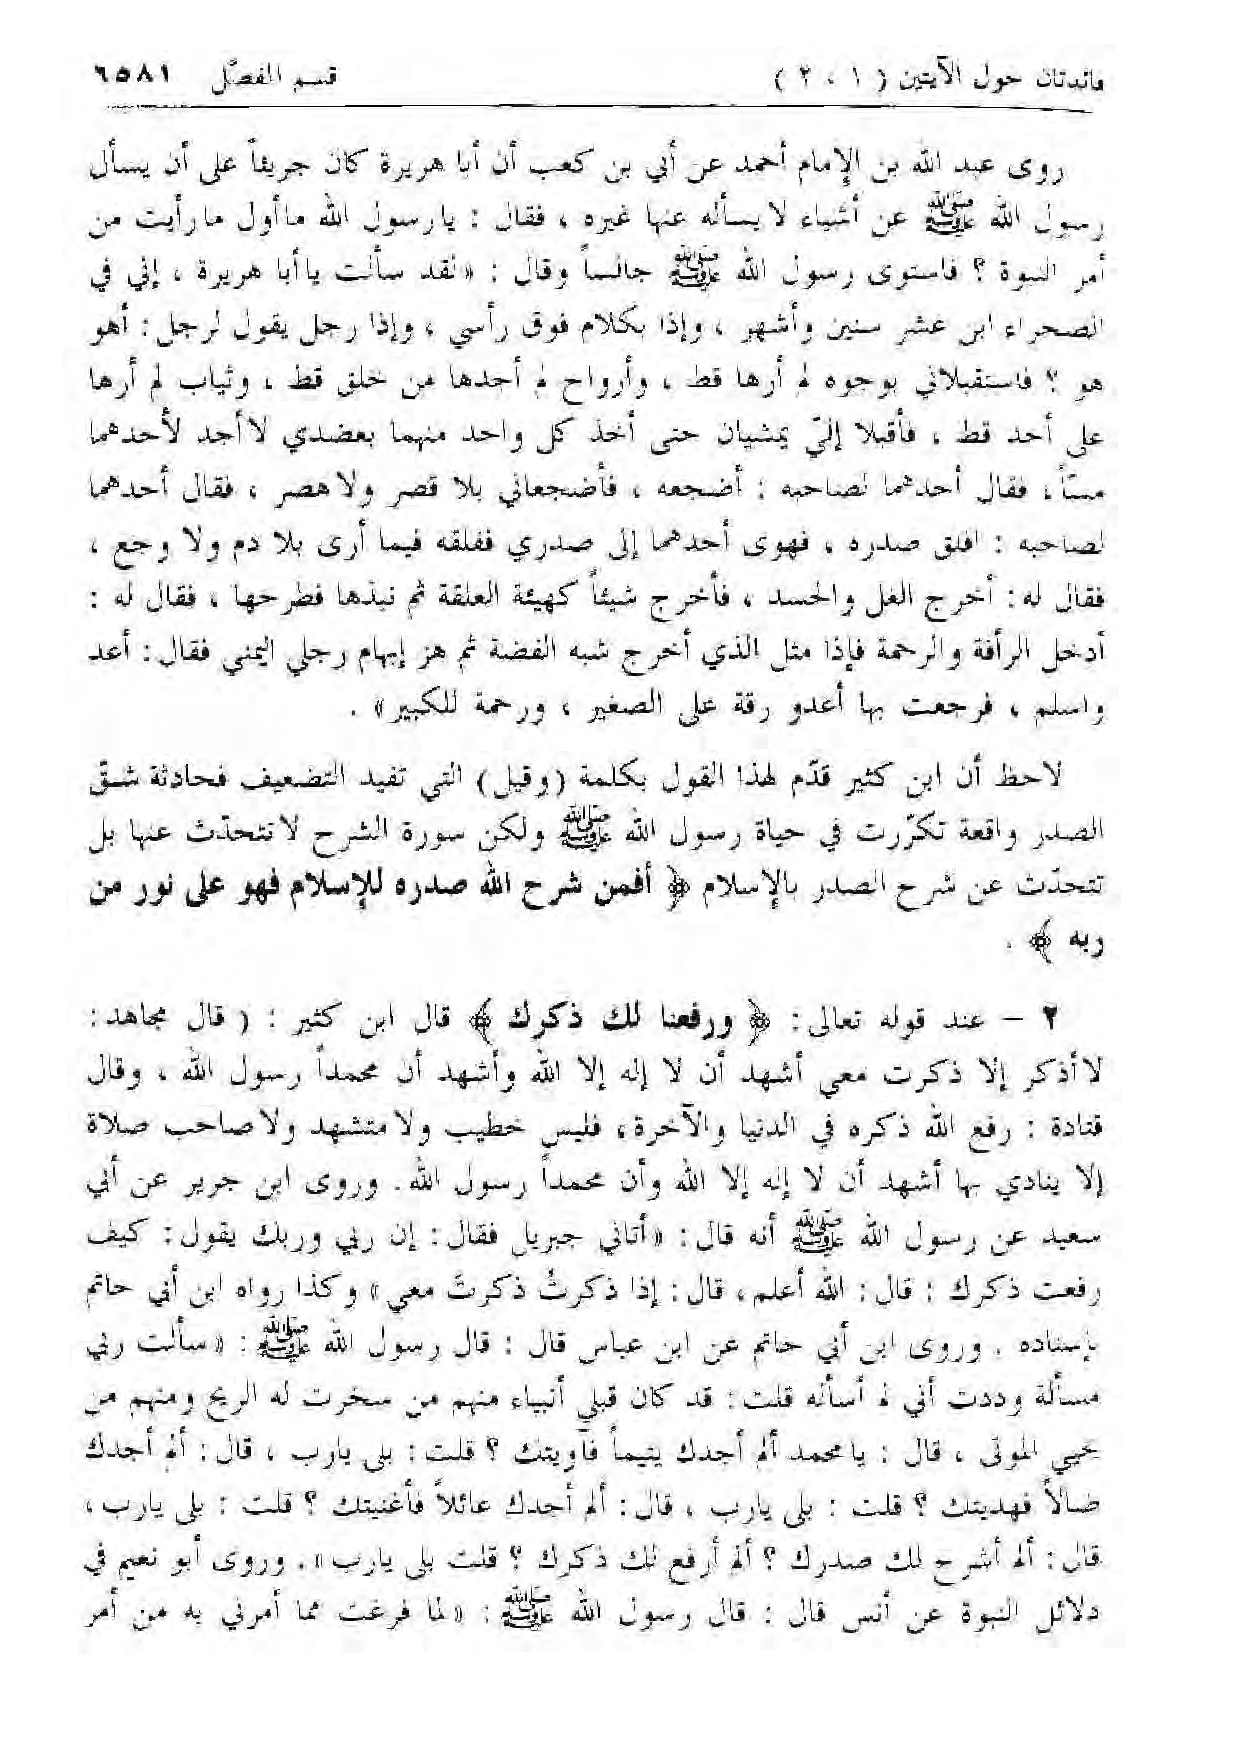 فائدتان حول الآيتين ( ١ ، ٢ ) قسم المفصَّل ٦٥٨١
روى عبد الله بن الإمام أحمد عن أبي بن كعب أن أبا هريرة كان جريئاً على أن يسأل
رسول الله ﷺ عن أشياء لا يسأله عنها غيره ، فقال : يارسول الله ماأول مارأيت من
أمر النبوة ؟ فاستوى رسول الله ﷺ جالساً وقال : « لقد سألت ياأبا هريرة ، إني في
الصحراء ابن عشر سنين وأشهر ، وإذا بكلام فوق رأسي ، وإذا رجل يقول لرجل : أهو
هو ؟ فاستقبلاني بوجوه لم أرها قط ، وأرواح لم أجدها من خلق قط ، وثياب لم أرها
على أحد قط ، فأقبلا إليّ يمشيان حتى أخذ كل واحد منهما بعضدي لاأجد لأحدهما
مسّاً ، فقال أحدهما لصاحبه : أضجعه ، فأضجعاني بلا قصر ولا هصر ، فقال أحدهما
لصاحبه : افلق صدره ، فهوى أحدهما إلى صدري ففلقه فيما أرى بلا دم ولا وجع ،
فقال له : أخرج الغل والحسد ، فأخرج شيئاً كهيئة العلقة ثم نبذها فطرحها ، فقال له :
أدخل الرأفة والرحمة فإذا مثل الذي أخرج شبه الفضة ثم هز إبهام رجلي اليمنى فقال : أعد
واسلم ، فرجعت بها أعدو رقة على الصغير ، ورحمة للكبير » .
لاحظ أن ابن كثير قدّم لهذا القول بكلمة (وقيل) التي تفيد التضعيف فحادثة شقّ
الصدر واقعة تكرّرت في حياة رسول الله ﷺ ولكن سورة الشرح لاتتحدث عنها بل
تتحدّث عن شرح الصدر بالإسلام ﴿ أفمن شرح الله صدره للإسلام فهو على نور من
ربه ﴾ .
٢ – عند قوله تعالى : ﴿ ورفعنا لك ذكرك ﴾ قال ابن كثير : ( قال مجاهد :
لاأذكر إلا ذكرت معي أشهد أن لا إله إلا الله وأشهد أن محمداً رسول الله ، وقال
قتادة : رفع الله ذكره في الدنيا والآخرة ، فليس خطيب ولا متشهد ولا صاحب صلاة
إلا ينادي بها أشهد أن لا إله إلا الله وأن محمداً رسول الله . وروى ابن جرير عن أبي
سعيد عن رسول الله ﷺ أنه قال : « أتاني جبريل فقال : إن ربي وربك يقول : كيف
رفعت ذكرك : قال : الله أعلم ، قال : إذا ذكرتُ ذكرتَ معي » وكذا رواه ابن أبي حاتم
بإسناده . وروى ابن أبي حاتم عن ابن عباس قال : قال رسول الله ﷺ : « سألت ربي
مسألة وددت أني لم أسأله قلت : قد كان قبلي أنبياء منهم من سخرت له الريح ومنهم من
يحيي الموتى ، قال : يامحمد ألم أجدك يتيماً فآويتك ؟ قلت : بلى يارب ، قال : ألم أجدك
ضالاً فهديتك ؟ قلت : بلى يارب ، قال : ألم أجدك عائلاً فأغنيتك ؟ قلت : بلى يارب ،
قال : ألم أشرح لك صدرك ؟ ألم أرفع لك ذكرك ؟ قلت بلى يارب » . وروى أبو نعيم في
دلائل النبوة عن أنس قال : قال رسول الله ﷺ : « لما فرغت مما أمرني به من أمر